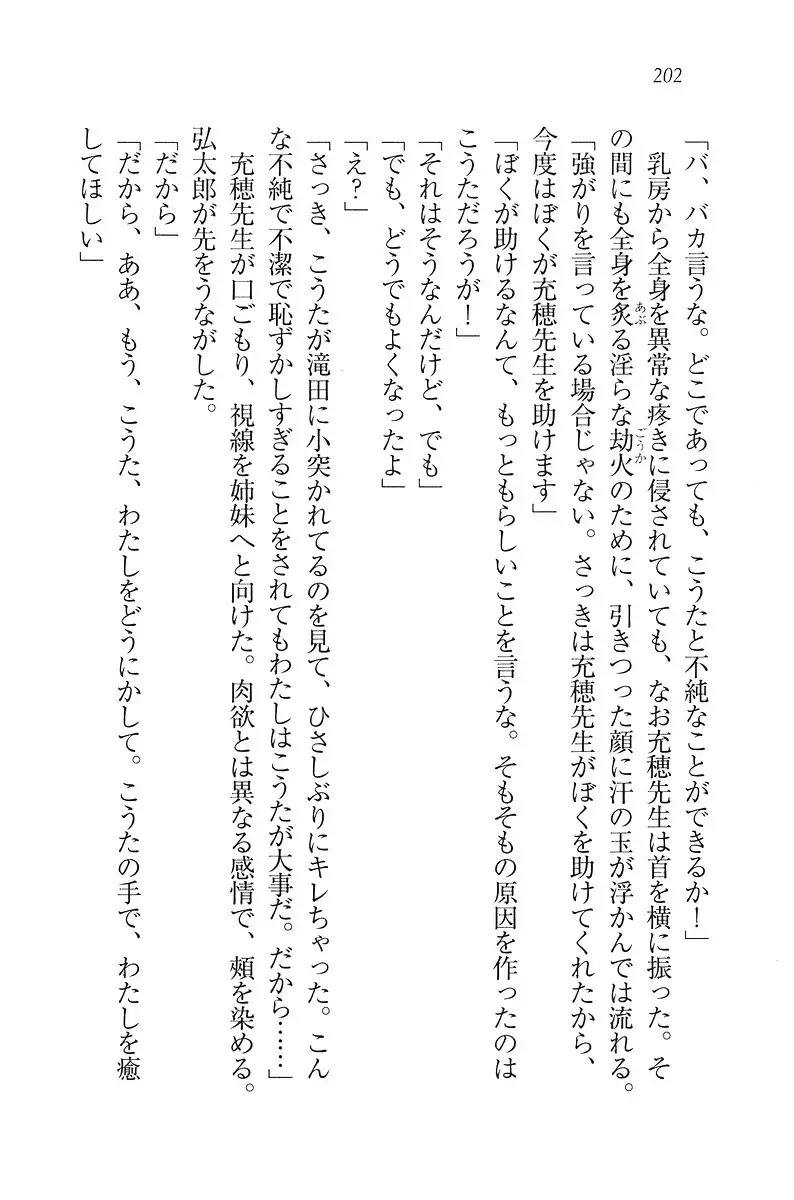 202
「バ、バカ言うな。どこであっても、こうたと不純なことができるか！」
　乳房から全身を異常な疼きに侵されていても、なお充穂先生は首を横に振った。そ
の間にも全身を炙る淫らな劫火のために、引きつった顔に汗の玉が浮かんでは流れる。
「強がりを言っている場合じゃない。さっきは充穂先生がぼくを助けてくれたから、
今度はぼくが充穂先生を助けます」
「ぼくが助けるなんて、もっともらしいことを言うな。そもそもの原因を作ったのは
こうただろうが！」
「それはそうなんだけど、でも」
「でも、どうでもよくなったよ」
「え？」
「さっき、こうたが滝田に小突かれてるのを見て、ひさしぶりにキレちゃった。こん
な不純で不潔で恥ずかしすぎることをされてもわたしはこうたが大事だ。だから……」
　充穂先生が口ごもり、視線を姉妹へと向けた。肉欲とは異なる感情で、頰を染める。
弘太郎が先をうながした。
「だから」
「だから、ああ、もう、こうた、わたしをどうにかして。こうたの手で、わたしを癒
してほしい」
あぶ
ごうか